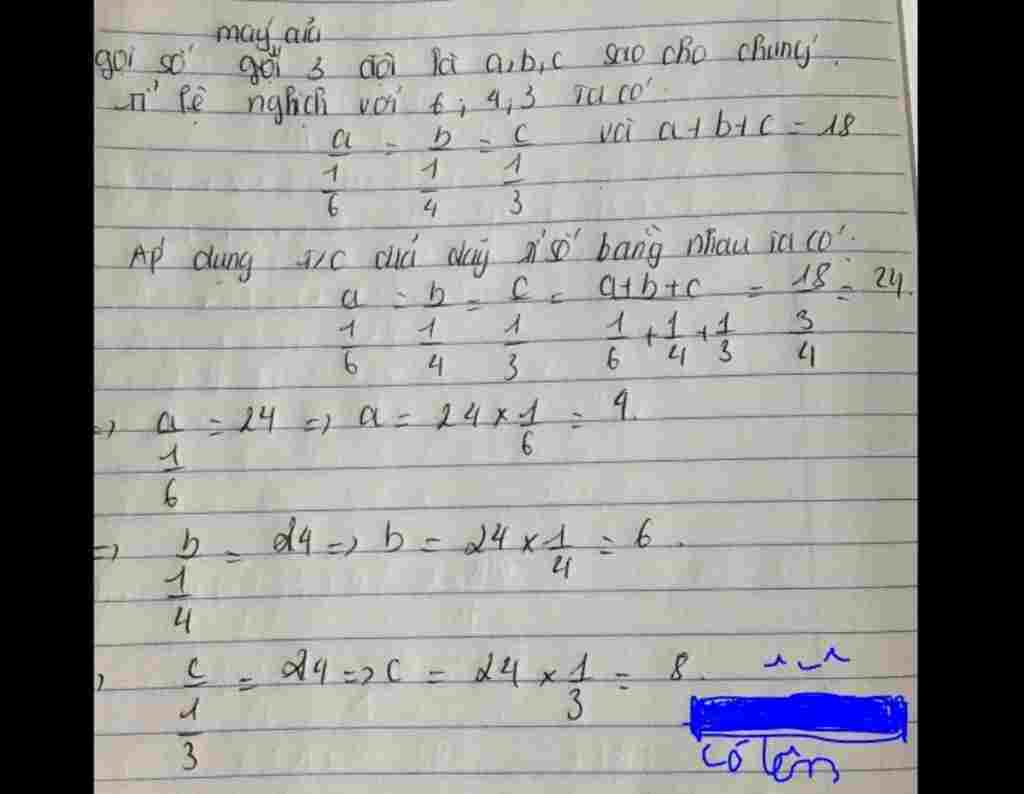 gọi số máy của gởi 3 đội là a, b, c sao cho chúng
tỉ lệ nghịch với 6; 4, 3 ta có
a/(1/6) = b/(1/4) = c/(1/3) và a+b+c = 18
Áp dụng t/c của dãy tỉ số bằng nhau ta có:
a/(1/6) = b/(1/4) = c/(1/3) = (a+b+c)/(1/6 + 1/4 + 1/3) = 18/(3/4) = 24.
=> a/(1/6) = 24 => a = 24 × 1/6 = 4.
=> b/(1/4) = 24 => b = 24 × 1/4 = 6.
=> c/(1/3) = 24 => c = 24 × 1/3 = 8.
cố lên